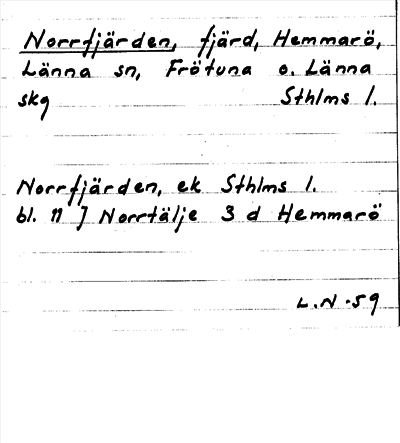 Norrfjärden, fjärd, Hemmarö,
Länna sn, Frötuna o. Länna
skg Sthlms l.
Norrfjärden, ek Sthlms l.
bl. 11 J Norrtälje 3 d Hemmarö
L.N -59